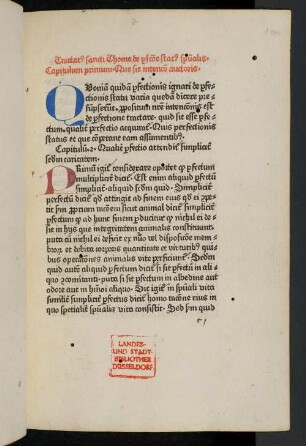 Tractat⁹ sancti Thome de ꝑfc̄one stat⁹ sp̄ualis.
Capitulum primum. Que sit intencio auctoris.
QUoniā quidā ꝑfectionis ignari de ꝑfe-
ctionis statu varia quedā dicere pre-
sūpserūt, ꝓpositum nr̄e intencōnis est
de ꝑfectione tractare. quid sit esse ꝑfe-
ctum, qualit̄ ꝑfectio acquirat̄. Quis perfectionis
status et que competant eam assumentibus.
Capitulū .2. Qualit̄ ꝑfectio attendit̄ simplicit̄
scd̄m caritatem.
PRimū igit̄ considerare oportet qꝫ ꝑfectum
multiplicit̄ dicit̄. Est enim aliquid ꝑfectū
simplicit̄. aliquid scd̄m quid. Simplicit̄
perfectū dicit̄ qd̄ attingit ad finem eius qd̄ ei ꝯpe-
tit scd̄m ꝓpriam racōnē
ꝑfectum qn̄ ad hunc finem ꝑducitur vt nichil ei de-
sit in hijs que integritatem animalis constituunt.
puta cū nichil ei desit
broꝝ, et debita corporis quantitate et virtutibꝫ qui-
bus operationes animalis vite ꝑficiunt̄. Scd̄m
quid aut̄ aliquid ꝑfectum dicit̄ si sit ꝑfectū in ali-
quo ꝯcomitanti. puta si sit ꝑfectum in albedine aut
odore aut in hm̄oi aliquo. Sic igit̄ in sp̄uali vita
similit̄ simplicit̄ ꝑfectus dicit̄ homo racōne eius in
quo sp̄cialit̄ sp̄ualis vita consistit. Sed scd̄m quid
LANDES-
UND STADT-
BIBLIOTHEK
DÜSSELDORF